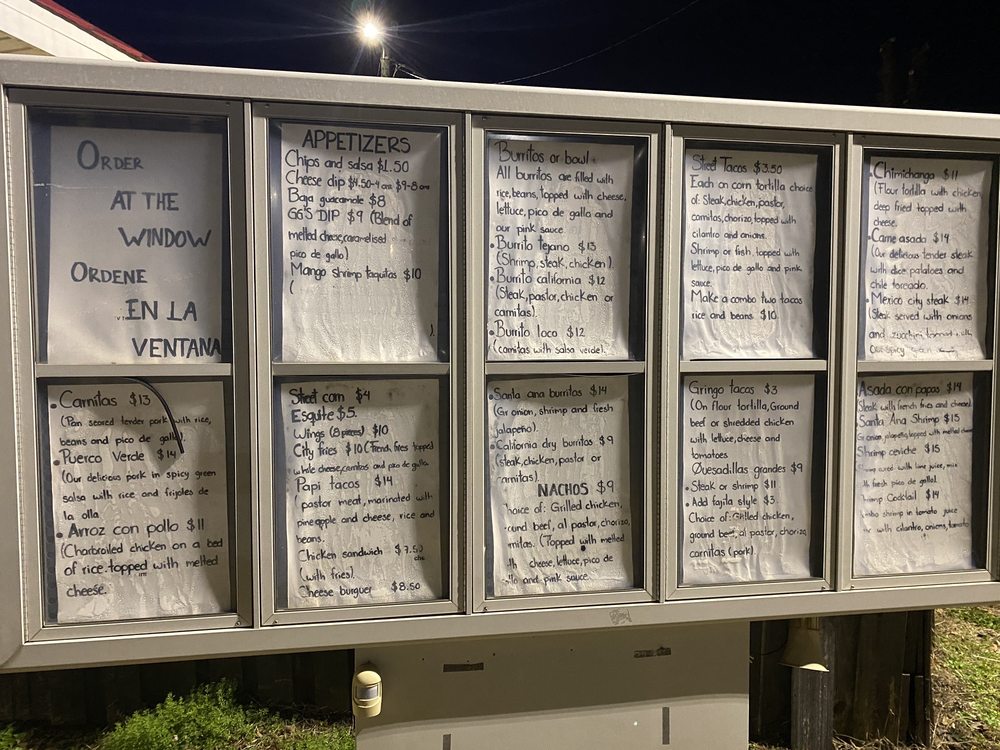 ORDER
AT THE
WINDOW
ORDENE
EN LA
VENTANA
APPETIZERS
Chips and salsa $1.50
Cheese dip $4.50-4 $9-8
Baja guacamole $8
GG'S DIP $9 (Blend of
melted cheese, caramelised
pico de gallo)
Mango shrimp taquitas $10
(
)
Burritos or bowl
All burritos are filled with
rice, beans, topped with cheese,
lettuce, pico de gallo and
our pink sauce
Burrito tejano $13
(Shrimp, steak, chicken).
Burrito california $12
(Steak, pastor, chicken or
carnitas).
Burrito loco $12
(carnitas with salsa verde).
Street Tacos $3.50
Each on corn tortilla choice
of: Steak, chicken, pastor,
carnitas, chorizo, topped with
cilantro and onions.
Shrimp or fish, topped with
lettuce, pico de gallo and pink
sauce.
Make a combo two tacos
rice and beans $10.
Chimichanga $11
(Flour tortilla with chicken
deep fried topped with
cheese.
Carne asada $14
(Our delicious tender steak
with dice patatoes and
chile toreado.
Mexico city steak $14
(Steak served with onions
and
Our spicy
Carnitas $13
(Pan seared tender pork with rice,
beans and pico de gallo).
Puerco Verde $14
(Our delicious pork in spicy green
salsa with rice and frijoles de
la olla.
Arroz con pollo $11
(Charbroiled chicken on a bed
of rice, topped with melted
cheese.
Street corn $4
Esquite $5.
Wings (8 pieces) $10
City fries $10 (French fries topped
white cheese, carnitas and pico de gallo.
Papi tacos $14
(pastor meat, marinated with
pineapple and cheese, rice and
beans.
Chicken sandwich $7.50
(with fries).
Cheese burguer $8.50
Santa ana burritos $14
(Gr onion, shrimp and fresh
jalapeño).
California dry burritos $9
(steak, chicken, pastor or
carnitas).
NACHOS $9
hoice of: Grilled chicken,
ound beef, al pastor, chorizo,
rnitas. (Topped with melted
cheese, lettuce, pico de
llo and pink sauce
Gringo tacos $3
(On flour tortilla, Ground
beef or shredded chicken
with lettuce, cheese and
tomatoes
Quesadillas grandes $9
Steak or shrimp $11
Add fajita style $3.
Choice of: Grilled chicken,
ground beef, al pastor, chorizo,
carnitas (pork).
Asada con papas $14
Steak with french fries and cheese)
Santa Ana Shrimp $15
Gr onion, jalapeño, topped with melted cheese
Shrimp ceviche $15
hrimp cured with lime juice, mix
th fresh pico de gallo).
hrimp Cocktail $14
shrimp in tomato juice
with cilantro, onions, tomato